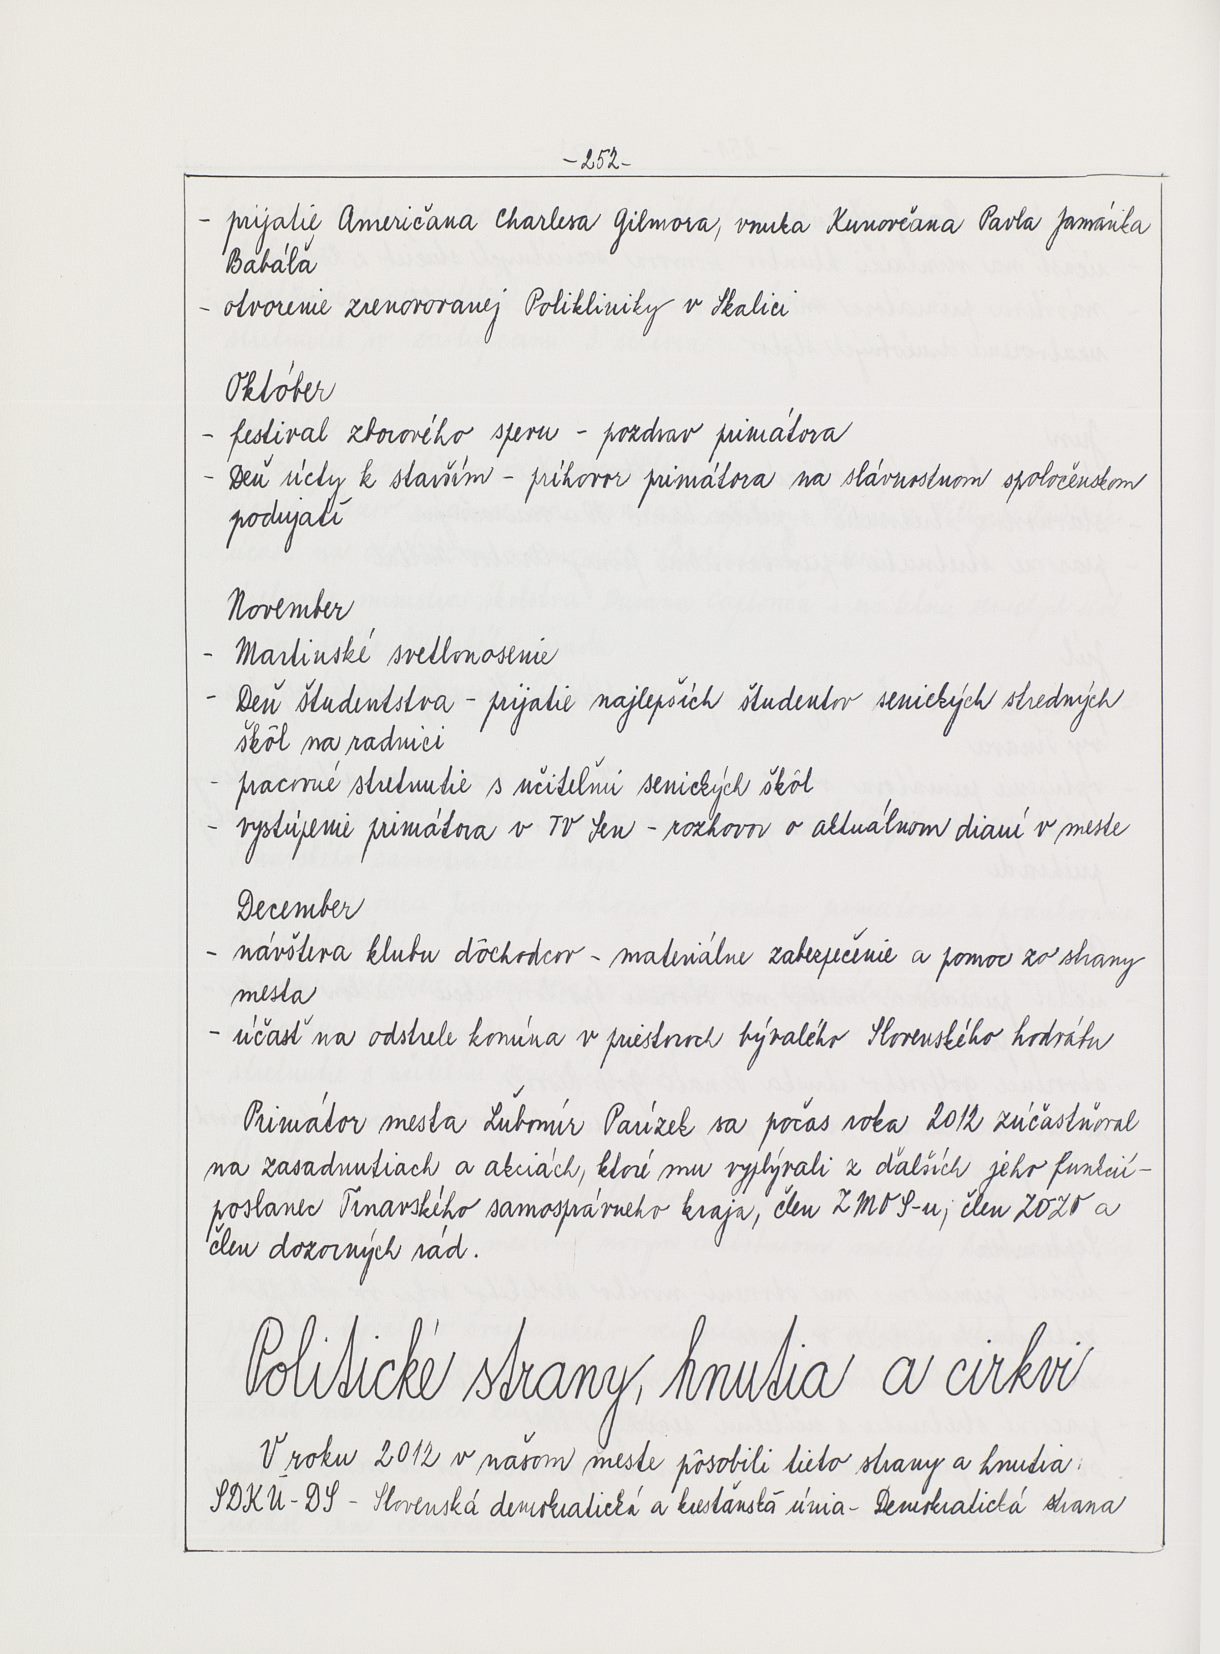 -252-
- prijatie Američana Charlesa Gilmora, vnuka Kunovčana Pavla Jamárika
Babáľa
- otvorenie zrenovovanej Polikliniky v Skalici
Október
- festival zborového spevu - pozdrav primátora
- Deň úcty k starším - príhovor primátora na slávnostnom spoločenskom
podujatí
November
- Martinské svetlonosenie
- Deň študentstva - prijatie najlepších študentov senických stredných
škôl na radnici
- pracovné stretnutie s učiteľmi senických škôl
- vystúpenie primátora v TV Sen - rozhovor o aktuálnom dianí v meste
December
- návšteva klubu dôchodcov - materiálne zabezpečenie a pomoc zo strany
mesta
- účasť na odstrele komína v priestoroch bývalého Slovenského hodvábu
Primátor mesta Ľubomír Parízek sa počas roka 2012 zúčastňoval
na zasadnutiach a akciách, ktoré mu vyplývali z ďalších jeho funkcií -
poslanec Trnavského samosprávneho kraja, člen ZMOS-u, člen ZOZO a
člen dozorných rád.
Politické strany, hnutia a cirkvi
V roku 2012 v našom meste pôsobili tieto strany a hnutia:
SDKÚ-DS - Slovenská demokratická a kresťanská únia - Demokratická strana